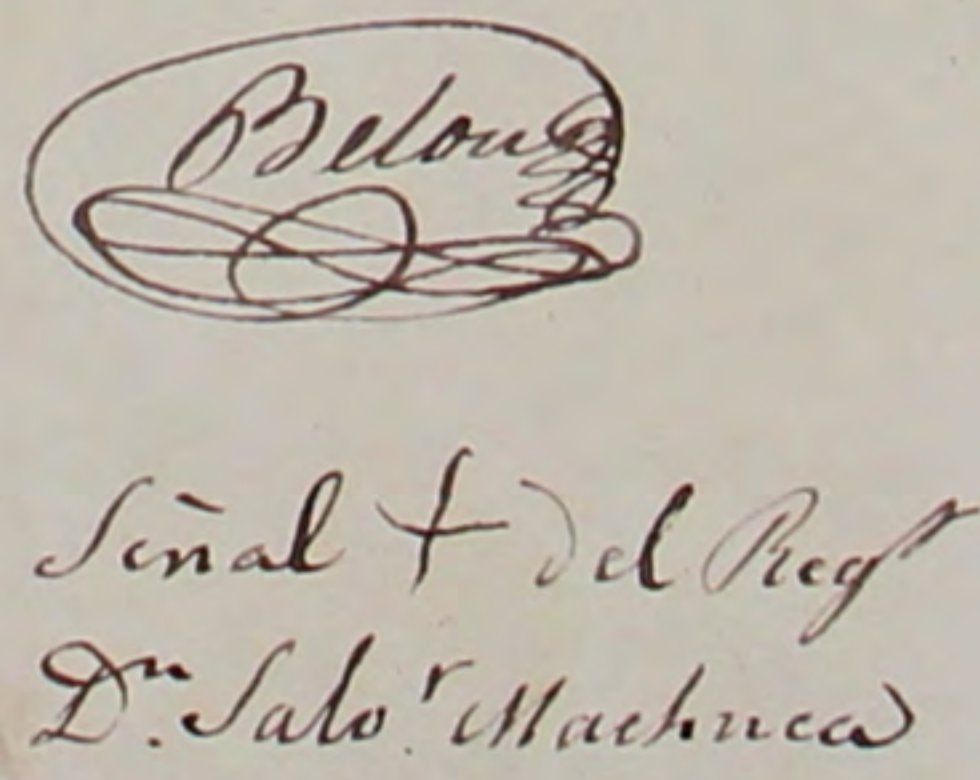 Belon
Señal + del Regr
Dn. Salvr Machuca